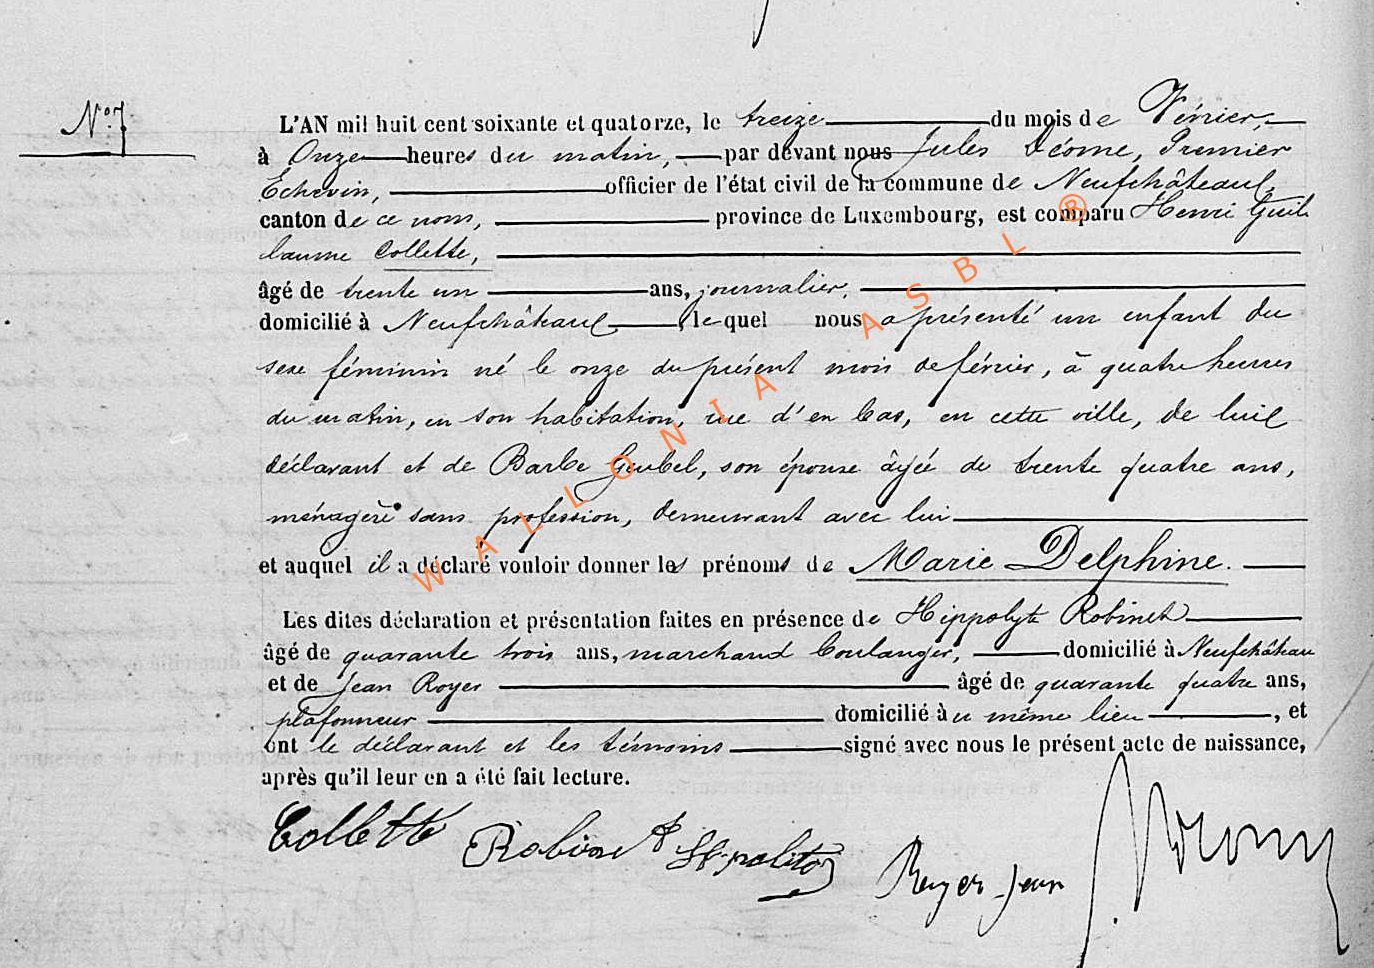 N° 7
L'AN mil huit cent soixante et quatorze, le treize du mois de Février,
à Onze heures du matin, par devant nous Jules Déome, Premier
Echevin, officier de l'état civil de la commune de Neufchâteau,
canton de ce nom, province de Luxembourg, est comparu Henri Guil
laume Collette,
âgé de trente un ans, journalier,
domicilié à Neufchâteau, le quel nous a présenté un enfant du
sexe féminin né le onze du présent mois de février, à quatre heures
du matin, en son habitation, rue d'en bas, en cette ville, de lui
déclarant et de Barbe Goubel, son épouse âgée de trente quatre ans,
ménagère sans profession, demeurant avec lui
et auquel il a déclaré vouloir donner les prénoms de Marie Delphine.
Les dites déclaration et présentation faites en présence de Hippolyte Robinet
âgé de quarante trois ans, marchand boulanger, domicilié à Neufchâteau
et de Jean Royer âgé de quarante quatre ans,
plafonneur domicilié au même lieu, et
ont le déclarant et les témoins signé avec nous le présent acte de naissance,
après qu'il leur en a été fait lecture.
Collette Robinet Royer Jean
WALLONIA ASBL ®